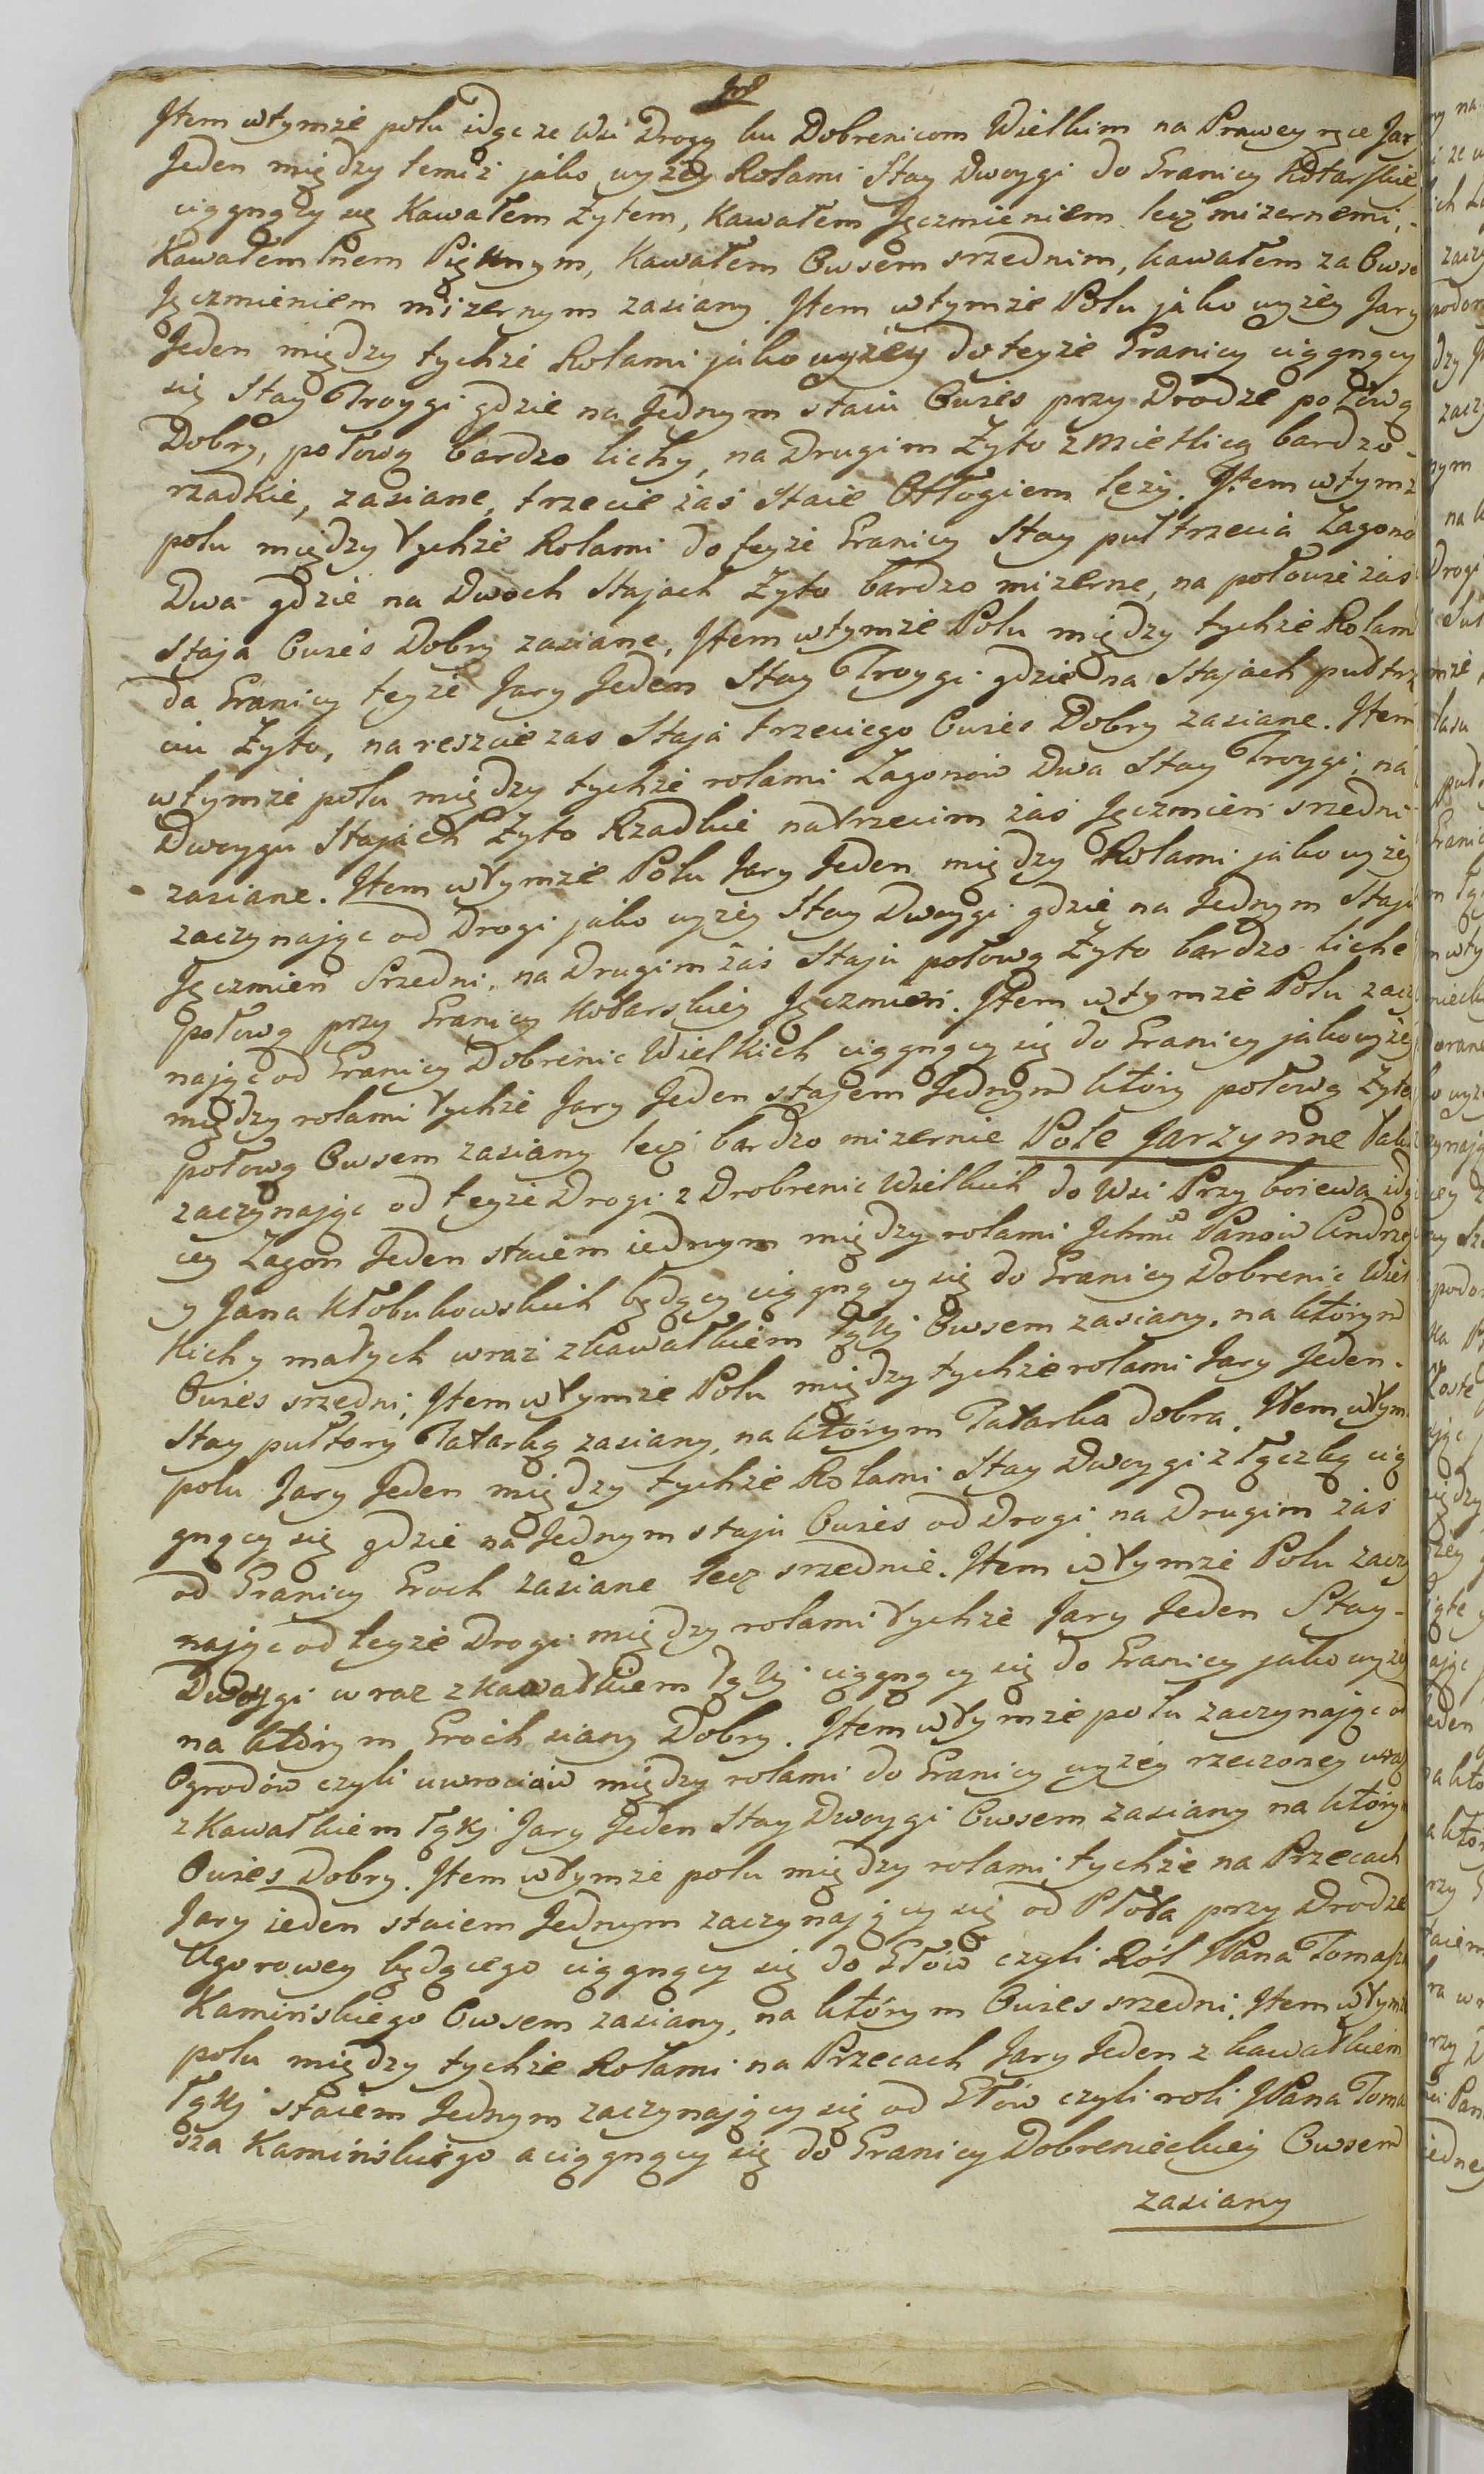 Jtem wtymże polu idąc ze Wsi Drogą ku Dobrenicom Wielkim na Prawey ręce Jar
Jeden między temiż jako wyżey Rolami Stay Dwoygi do Granicy
ciągnący się Kawałem Żytem, Kawałem Jęczmieniem lecz mizernemi,
Kawałem lnem Pięknym, Kawałem Owsem srzednim, kawałem za Owse
Jęczmieniem mizernym zasiany. Jtem wtymże Polu jako wyżey Jary
Jeden między tychże Rolami jako wyżey do teyże Granicy ciągnący
się Stay Troygi gdzie na Jednym staiu Owies przy Drodze połowa
Dobry, połowa bardzo lichy, na Drugim Żyto zmietlicą bardzo
rzadkie, zasiane, trzecie zaś Staie Odłogiem leży. Jtem wtymż
polu między tychże Rolami do teyże Granicy Stay puł trzecia Zagono
Dwa gdzie na Dwoch Stajach Żyto bardzo mizerne, na połowie zaś
Staja Owies Dobry zasiane, Jtem wtymże Polu między tychże Rolam
do Granicy teyże Jary Jeden Stay Troygi gdzie na Stajach pułtrz
ciu Żyto, na reszcie zas Staja trzeciego Owies Dobry zasiane. Jtem
wtymże polu między tychże rolami Zagonow Dwa Stay Troygi, na
Dwoygu Stajach Żyto Rzadkie natrzecim zaś Jęczmień srzedni
zasiane. Jtem wtymże Polu Jary Jeden między Rolami jako wyżey
zaczynając od Drogi jako wyżey Stay Dwoygi gdzie na Jednym Staju
Jęczmień Srzedni, na Drugim zaś Staju połową Żyto bardzo liche
połową przy Granicy Kobarskiey Jęczmień. Jtem wtymże Polu zaczy
nając od Granicy Dobrenic Wielkich ciągnący się do Granicy jako wyżey
między rolami tychże Jary Jeden stajem Jednym który połową Żyte
połową Owsem zasiany lecz bardzo mizernie Pole Jarzynne
zaczynając od teyże Drogi z Drobrenic Wielkich do Wsi Przyboiewa idą
cey Zagon Jeden staiem iednym między rolami Jchmć Panow Andrze
y Jana Kłobukowskich będący ciągnący się do Granicy Dobrenic Wiel
kich y małych wraz zkawałkiem łąki Owsem zasiany, na którym
Owies srzedni, Jtem wtymże Polu między tychże rolami Jary Jeden
Stay pułtory Tatarką zasiany, na którym Tatarka dobra. Jtem wtym
polu Jary Jeden między tychże Rolami Stay Dwoygi z łączką cią
gnący się gdzie na Jednym staju Owies od Drogi na Drugim zaś
od Granicy Groch zasiane lecz srzednie. Jtem wtymże Polu zaczy
nając od teyże Drogi między rolami tychże Jary Jeden Stay
Dwoygi wraz z kawałkiem łąki ciągnący się do Granicy jako wyżey
na którym Groch siany Dobry. Jtem wtymże polu zaczynając od
Ogrodów czyli uwrociów między rolami do Granicy wyżey rzeczoney wraz
z Kawałkiem łąki Jary Jeden Stay Dwoygi Owsem zasiany na którym
Owies Dobry. Jtem wtymże polu między rolami tychże na Przecach
Jary ieden staiem Jednym zaczynający się od Płota przy Drodze
Ugorowey będącego ciągnący się do Głów czyli Ról JPana Tomasza
Kamińskiego Owsem zasiany, na którym Owies srzedni. Jtem wtymże
polu między tychże Rolami na Przecach Jary Jeden z kawałkiem
łąki staiem Jednym zaczynający się od Głów czyli roli JPana Toma
sza Kamińskiego a ciągnący się do Granicy Dobrenieckiey Owsem
zasiany